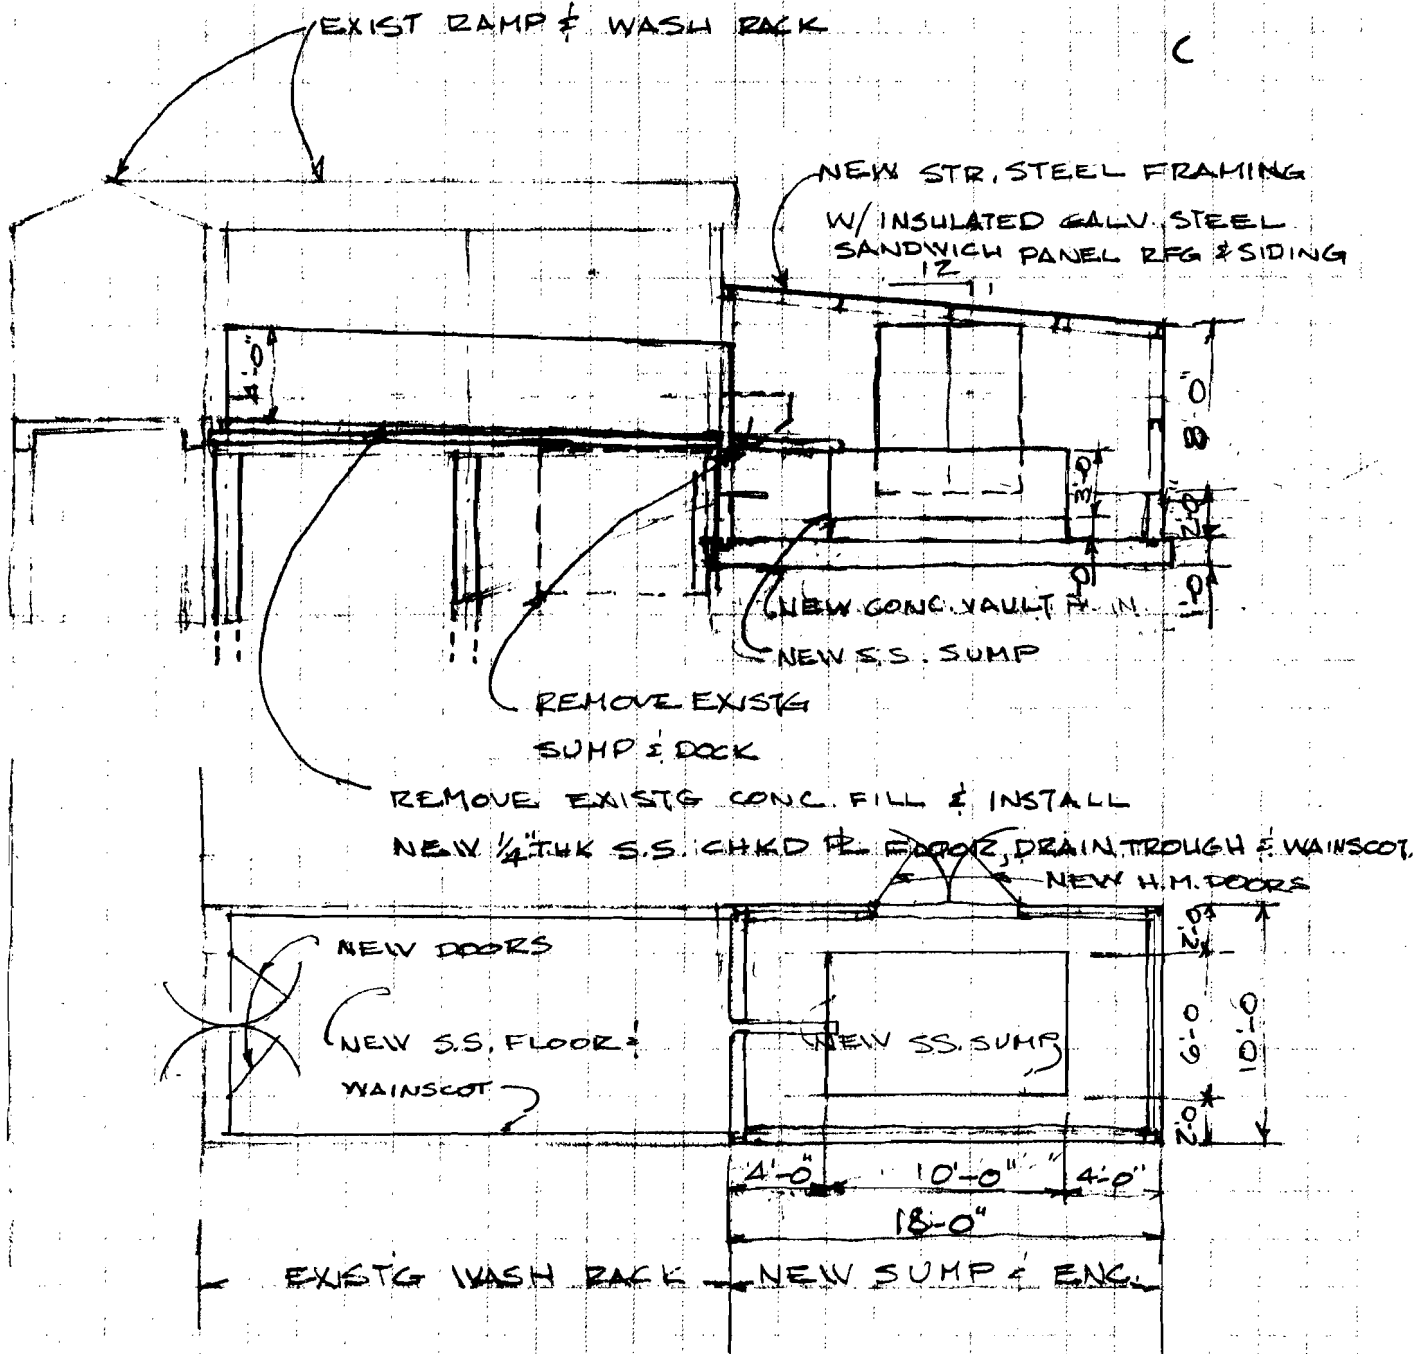 EXIST RAMP & WASH RACK
C
NEW STR. STEEL FRAMING
W/ INSULATED GALV. STEEL
SANDWICH PANEL RFG & SIDING
12
1
4'-0"
8'-0"
3'-0
2'-0"
1'-0
1'-0
NEW CONC. VAULT
NEW S.S. SUMP
REMOVE EXIST'G
SUMP & DOCK
REMOVE EXIST'G CONC. FILL & INSTALL
NEW 1/4" THK S.S. CHKD PL FLOOR, DRAIN TROUGH & WAINSCOT.
NEW H.M. DOORS
NEW DOORS
NEW S.S. FLOOR &
WAINSCOT
NEW SS. SUMP
2'-0
6'-0
2'-0
10'-0
4'-0" 10'-0" 4'-0"
18'-0"
EXIST'G WASH RACK
NEW SUMP & ENC.